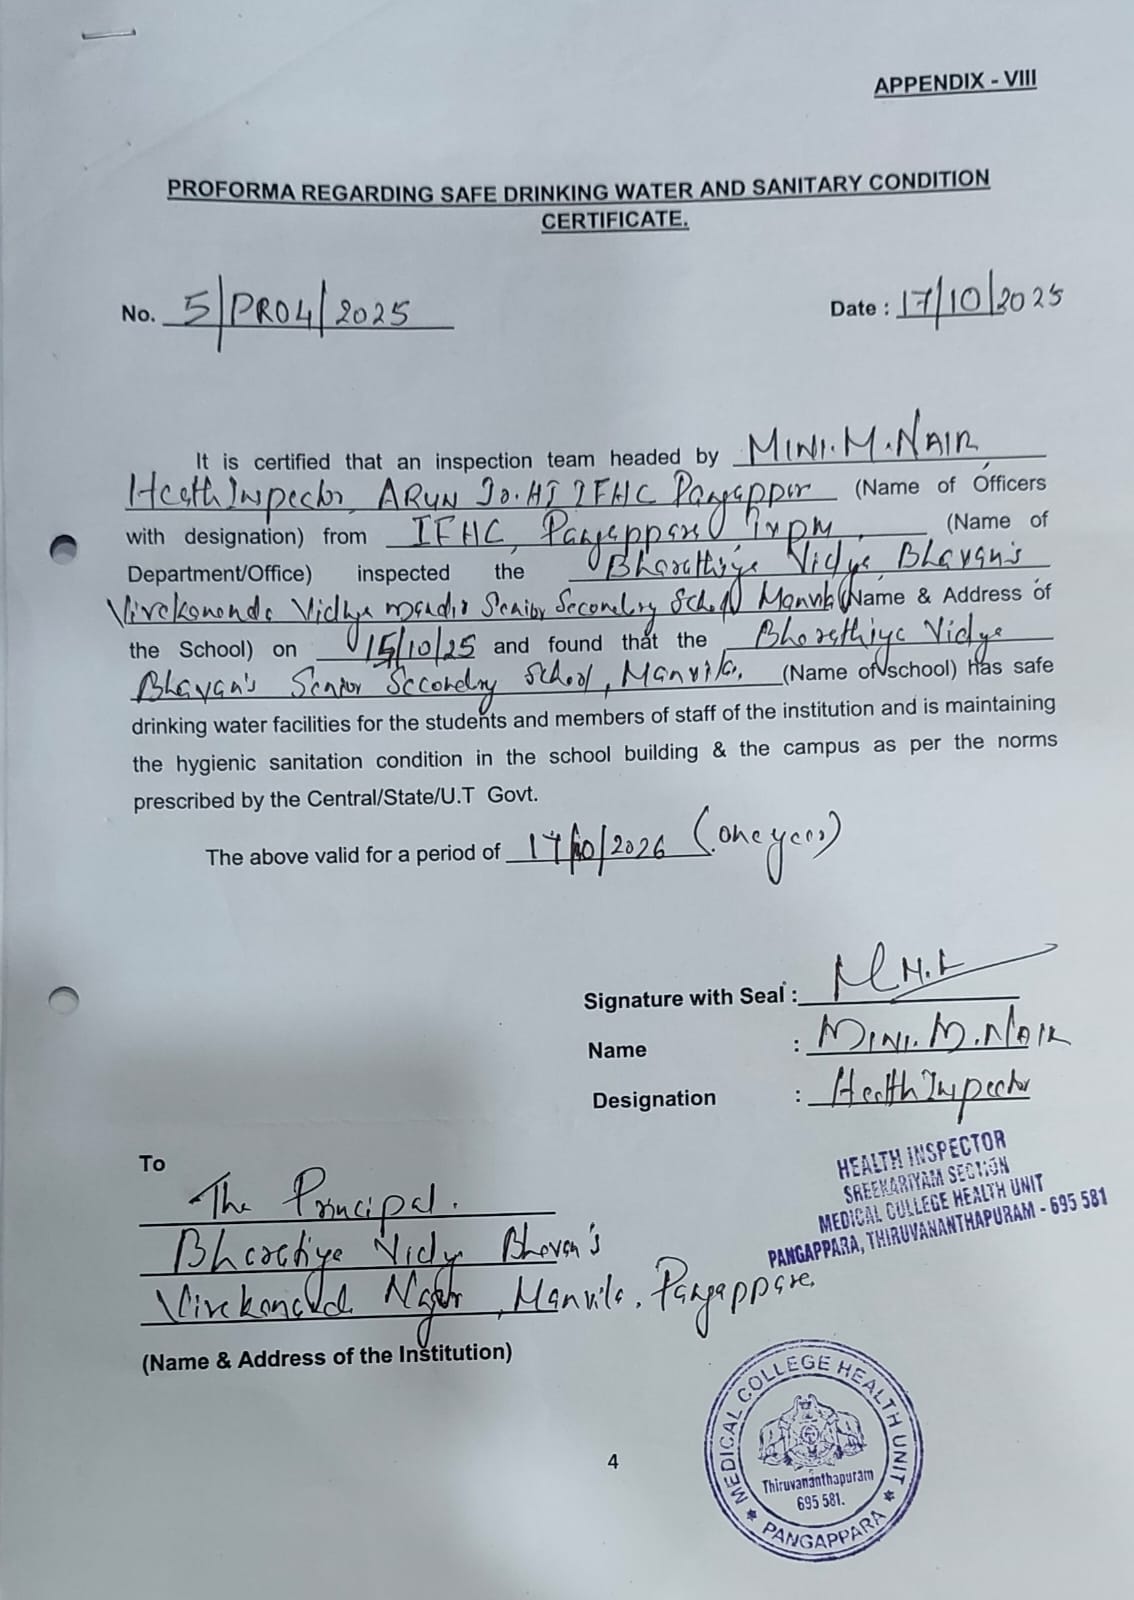 APPENDIX - VIII
PROFORMA REGARDING SAFE DRINKING WATER AND SANITARY CONDITION
CERTIFICATE.
No. 5/PR04/2025
Date : 17/10/2025
It is certified that an inspection team headed by MINI.M.NAIR
Health Inspector, ARUN Jo.HI IFHC Pangappar (Name of Officers
with designation) from IFHC, Pangappara Tvpm, (Name of
Department/Office) inspected the Bharathiya Vidya Bhavan's
Vivekananda Vidhya mandir Senior Secondary School Manvila (Name & Address of
the School) on 15/10/25 and found that the Bharathiya Vidya
Bhavan's Senior Secondary School, Manvila, (Name of school) Has safe
drinking water facilities for the students and members of staff of the institution and is maintaining
the hygienic sanitation condition in the school building & the campus as per the norms
prescribed by the Central/State/U.T Govt.
The above valid for a period of 17/10/2026 (one year)
Signature with Seal :
Name : MINI.M.NAIR
Designation : Health Inspector
HEALTH INSPECTOR
SREEKARIYAM SECTION
MEDICAL COLLEGE HEALTH UNIT
PANGAPPARA, THIRUVANANTHAPURAM - 695 581
To
The Principal.
Bharatiya Vidya Bhavan's
Vivekanand Nagar, Manvila, Pangappara.
(Name & Address of the Institution)
4
MEDICAL COLLEGE HEALTH UNIT
Thiruvananthapuram
695 581.
PANGAPPARA